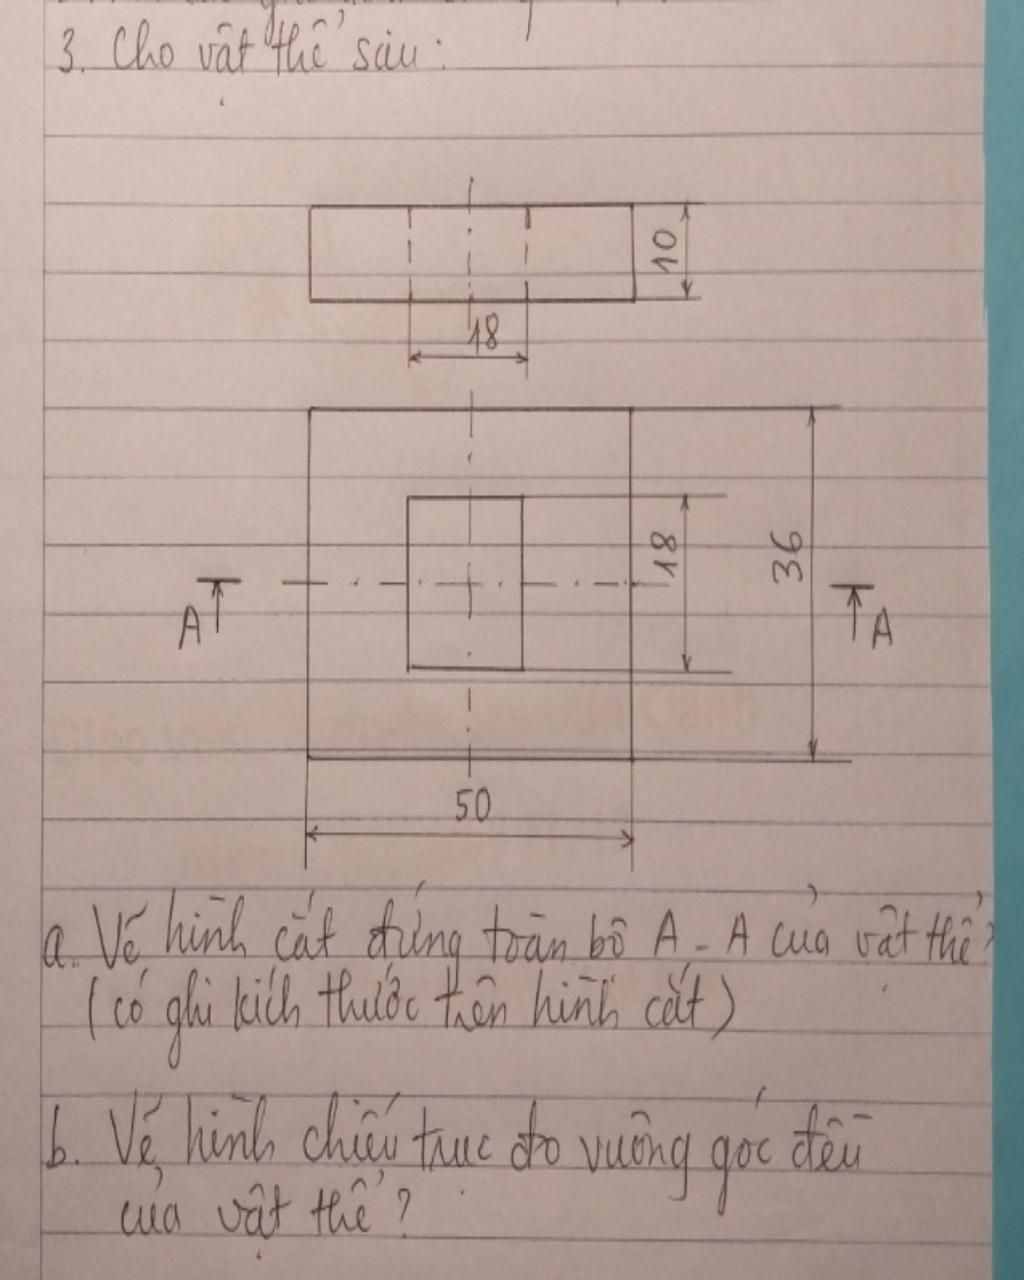 3. Cho vật thể sau:
10
18
18
36
A
A
50
a. Vẽ hình cắt đứng toàn bộ A - A của vật thể?
(có ghi kích thước trên hình cắt)
b. Vẽ hình chiếu trục đo vuông góc đều
của vật thể?